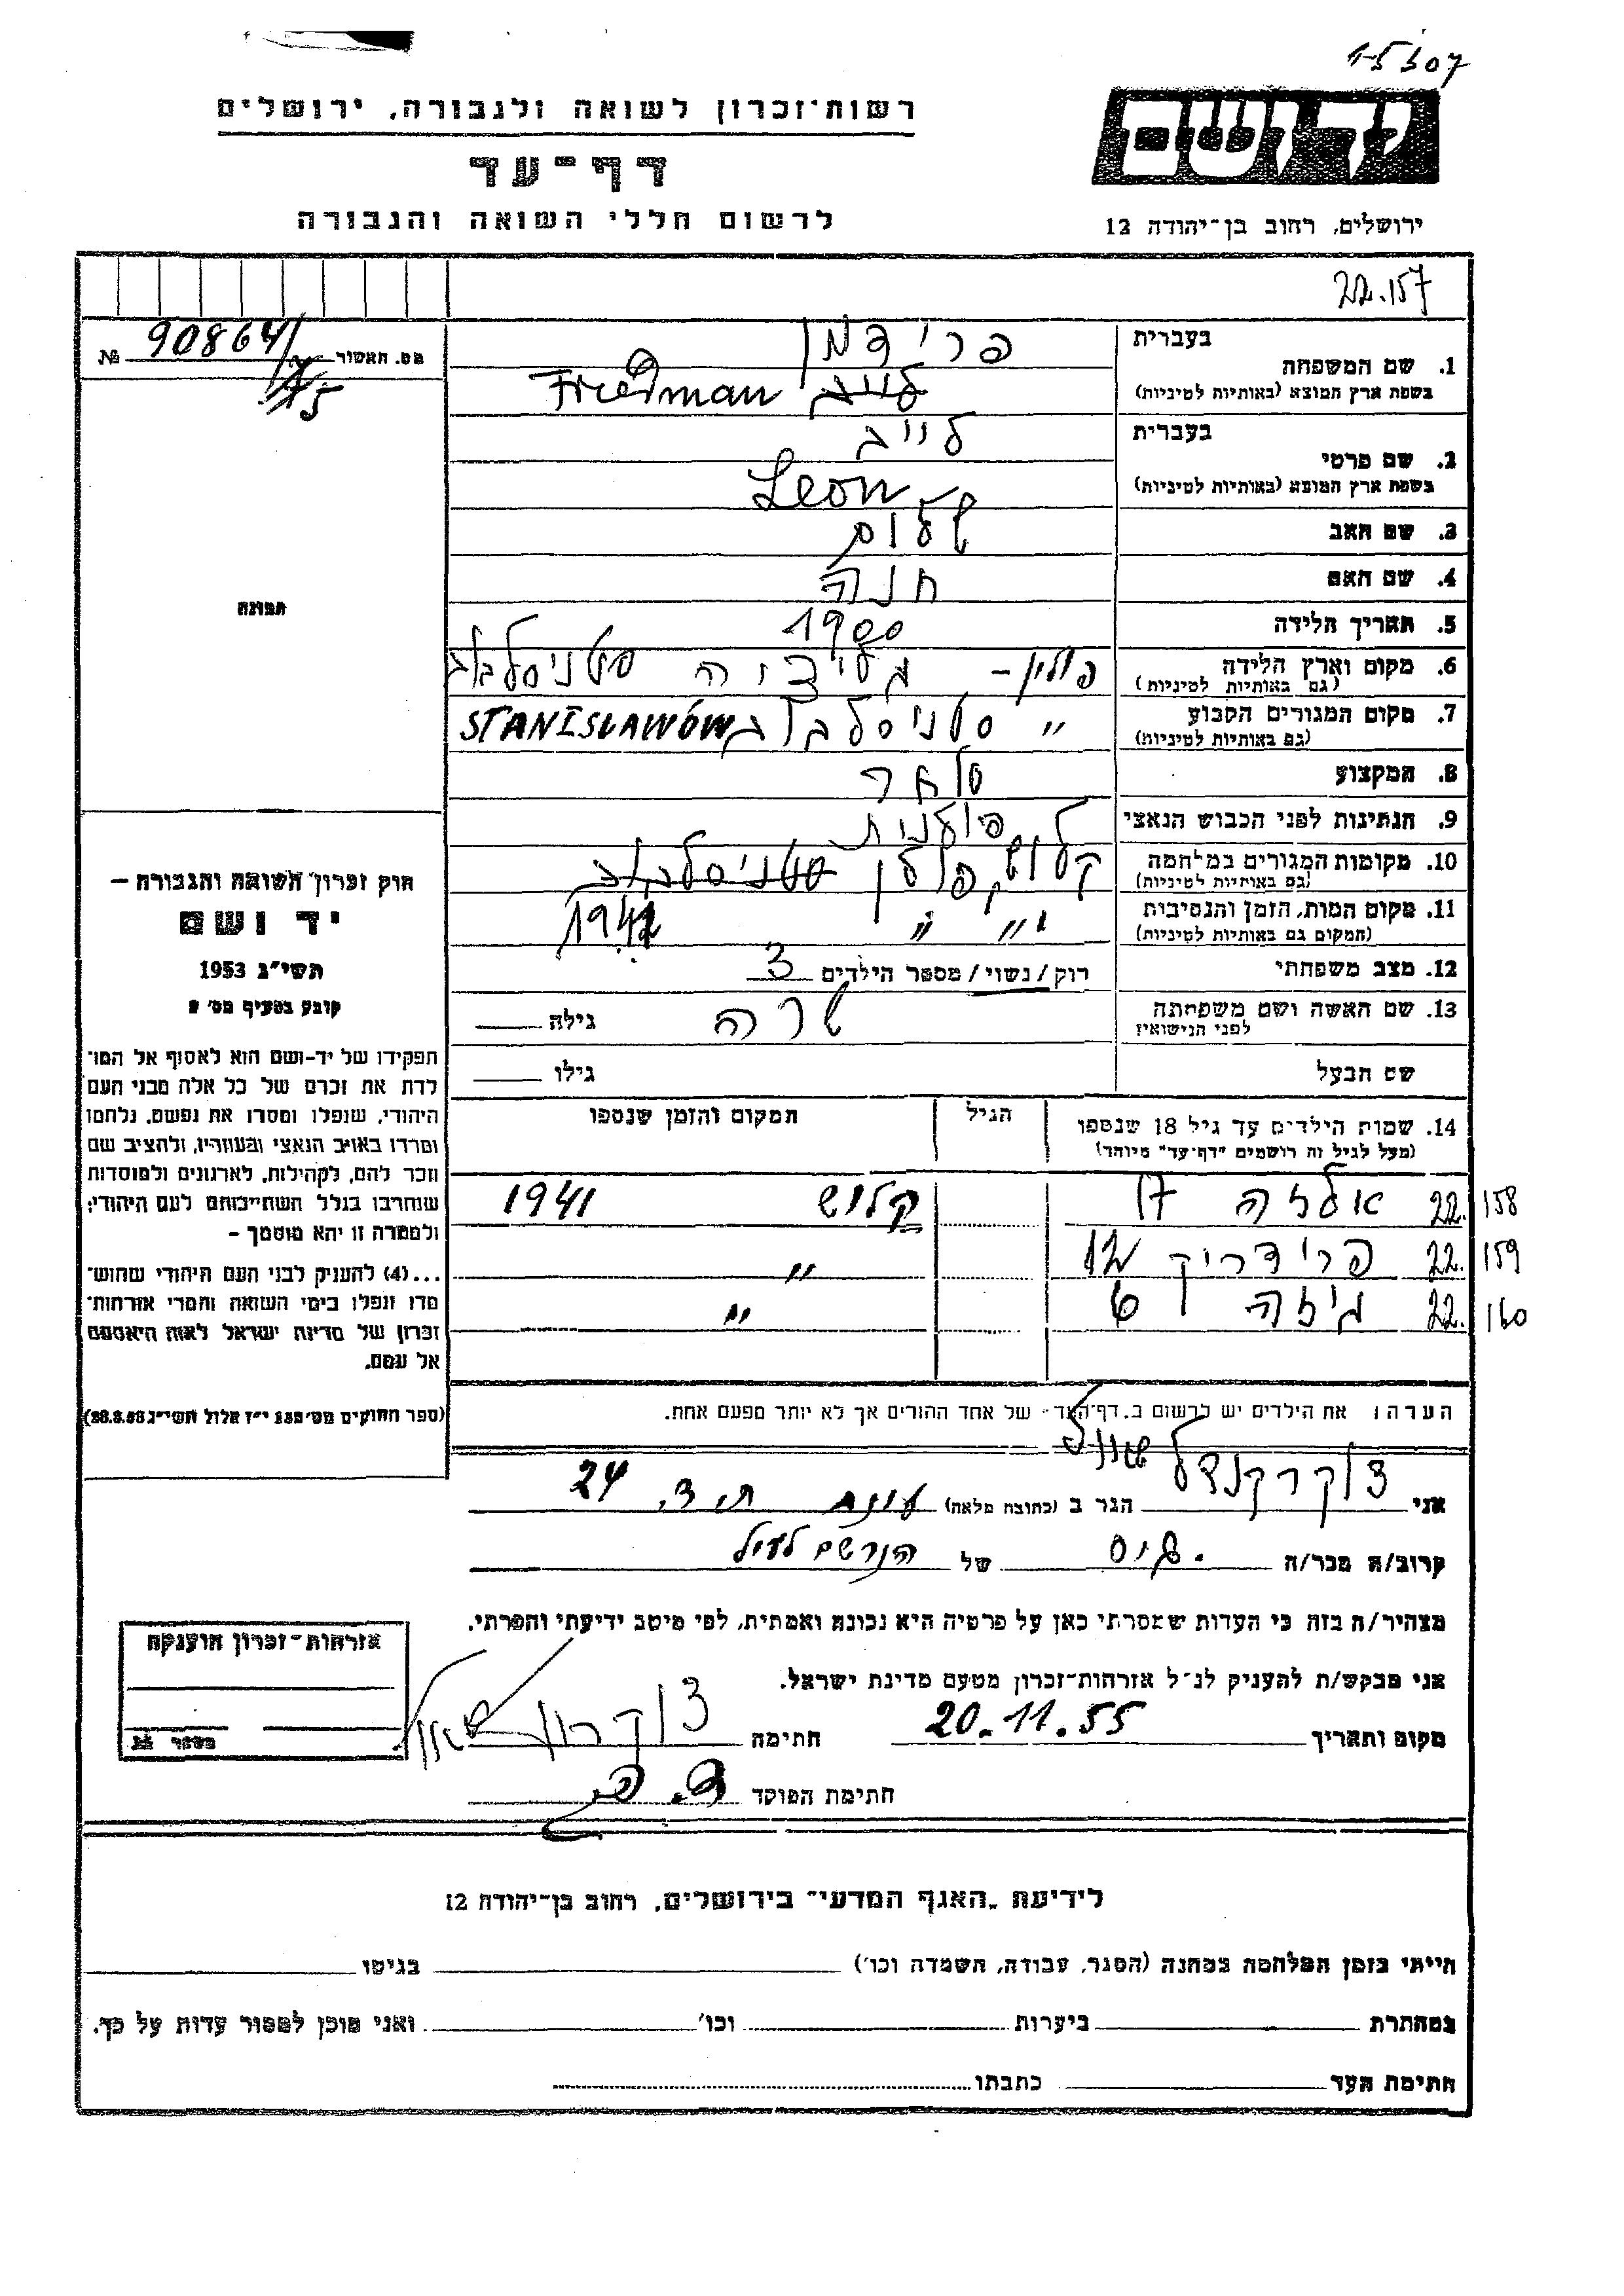 15307
רשות־זכרון לשואה ולגבורה, ירושלים
יד ושם
דף־עד
לרשום חללי השואה והגבורה
ירושלים, רחוב בן־יהודה 12
22.157
מס. האשור № 90864/75
תמונה
בעברית פרידמן
1. שם המשפחה
בשפת ארץ המוצא (באותיות לטיניות) לייב Friedman
בעברית לייב
2. שם פרטי
בשפת ארץ המוצא (באותיות לטיניות) Leon
3. שם האב שלום
4. שם האם חנה
5. תאריך הלידה 1900
6. מקום וארץ הלידה פולין - גליציה סטניסלבוב
(גם באותיות לטיניות)
7. מקום המגורים הקבוע " סטניסלבוב STANISŁAWÓW
(גם באותיות לטיניות)
8. המקצוע סוחר
9. הנתינות לפני הכבוש הנאצי פולנית
10. מקומות המגורים במלחמה קלוש, פולין סטניסלבוב
(גם באותיות לטיניות)
11. מקום המות, הזמן והנסיבות " " 1942
(המקום גם באותיות לטיניות)
12. מצב משפחתי רוק/נשוי/ מספר הילדים 3
13. שם האשה ושם משפחתה שרה גילה
לפני הנישואין
שם הבעל גילו
14. שמות הילדים עד גיל 18 שנספו הגיל המקום והזמן שנספו
(מעל לגיל זה רושמים "דף־עד" מיוחד)
22.158 אלזה 17 קלוש 1941
22.159 פרידריק 12 "
22.160 גיזה 6 "
הערה: את הילדים יש לרשום ב„דף־העד" של אחד ההורים אך לא יותר מפעם אחת.
חוק זכרון השואה והגבורה –
יד ושם
תשי"ג 1953
קובע בסעיף מס' 2
תפקידו של יד-ושם הוא לאסוף אל המו־
לדת את זכרם של כל אלה מבני העם
היהודי, שנפלו ומסרו את נפשם, נלחמו
ומרדו באויב הנאצי ובעוזריו, ולהציב שם
וזכר להם, לקהילות, לארגונים ולמוסדות
שנחרבו בגלל השתייכותם לעם היהודי;
ולמטרה זו יהא מוסמך –
...(4) להעניק לבני העם היהודי שהוש־
מדו ונפלו בימי השואה והמרי אזרחות־
זכרון של מדינת ישראל לאות היאספם
אל עמם.
(ספר החוקים מס' 132 י"ז אלול תשי"ג 28.8.53)
אני צוקרקנדל שאול הגר ב (כתובת מלאה) ת. ד. 24
קרוב/ה מכר/ה גיס של הנרשם לעיל
מצהיר/ה בזה כי העדות שמסרתי כאן על פרטיה היא נכונה ואמתית, לפי מיטב ידיעתי והכרתי.
אני מבקש/ת להעניק לנ"ל אזרחות־זכרון מטעם מדינת ישראל.
מקום ותאריך 20.11.55 חתימה
חתימת הפוקד
אזרחות־זכרון הוענקה
מספר №
לידיעת „האגף המדעי" בירושלים, רחוב בן־יהודה 12
הייתי בזמן המלחמה במחנה (הסגר, עבודה, השמדה וכו') בגיטו
במחתרת ביערות וכו' ואני מוכן למסור עדות על כך.
חתימת העד כתבתו